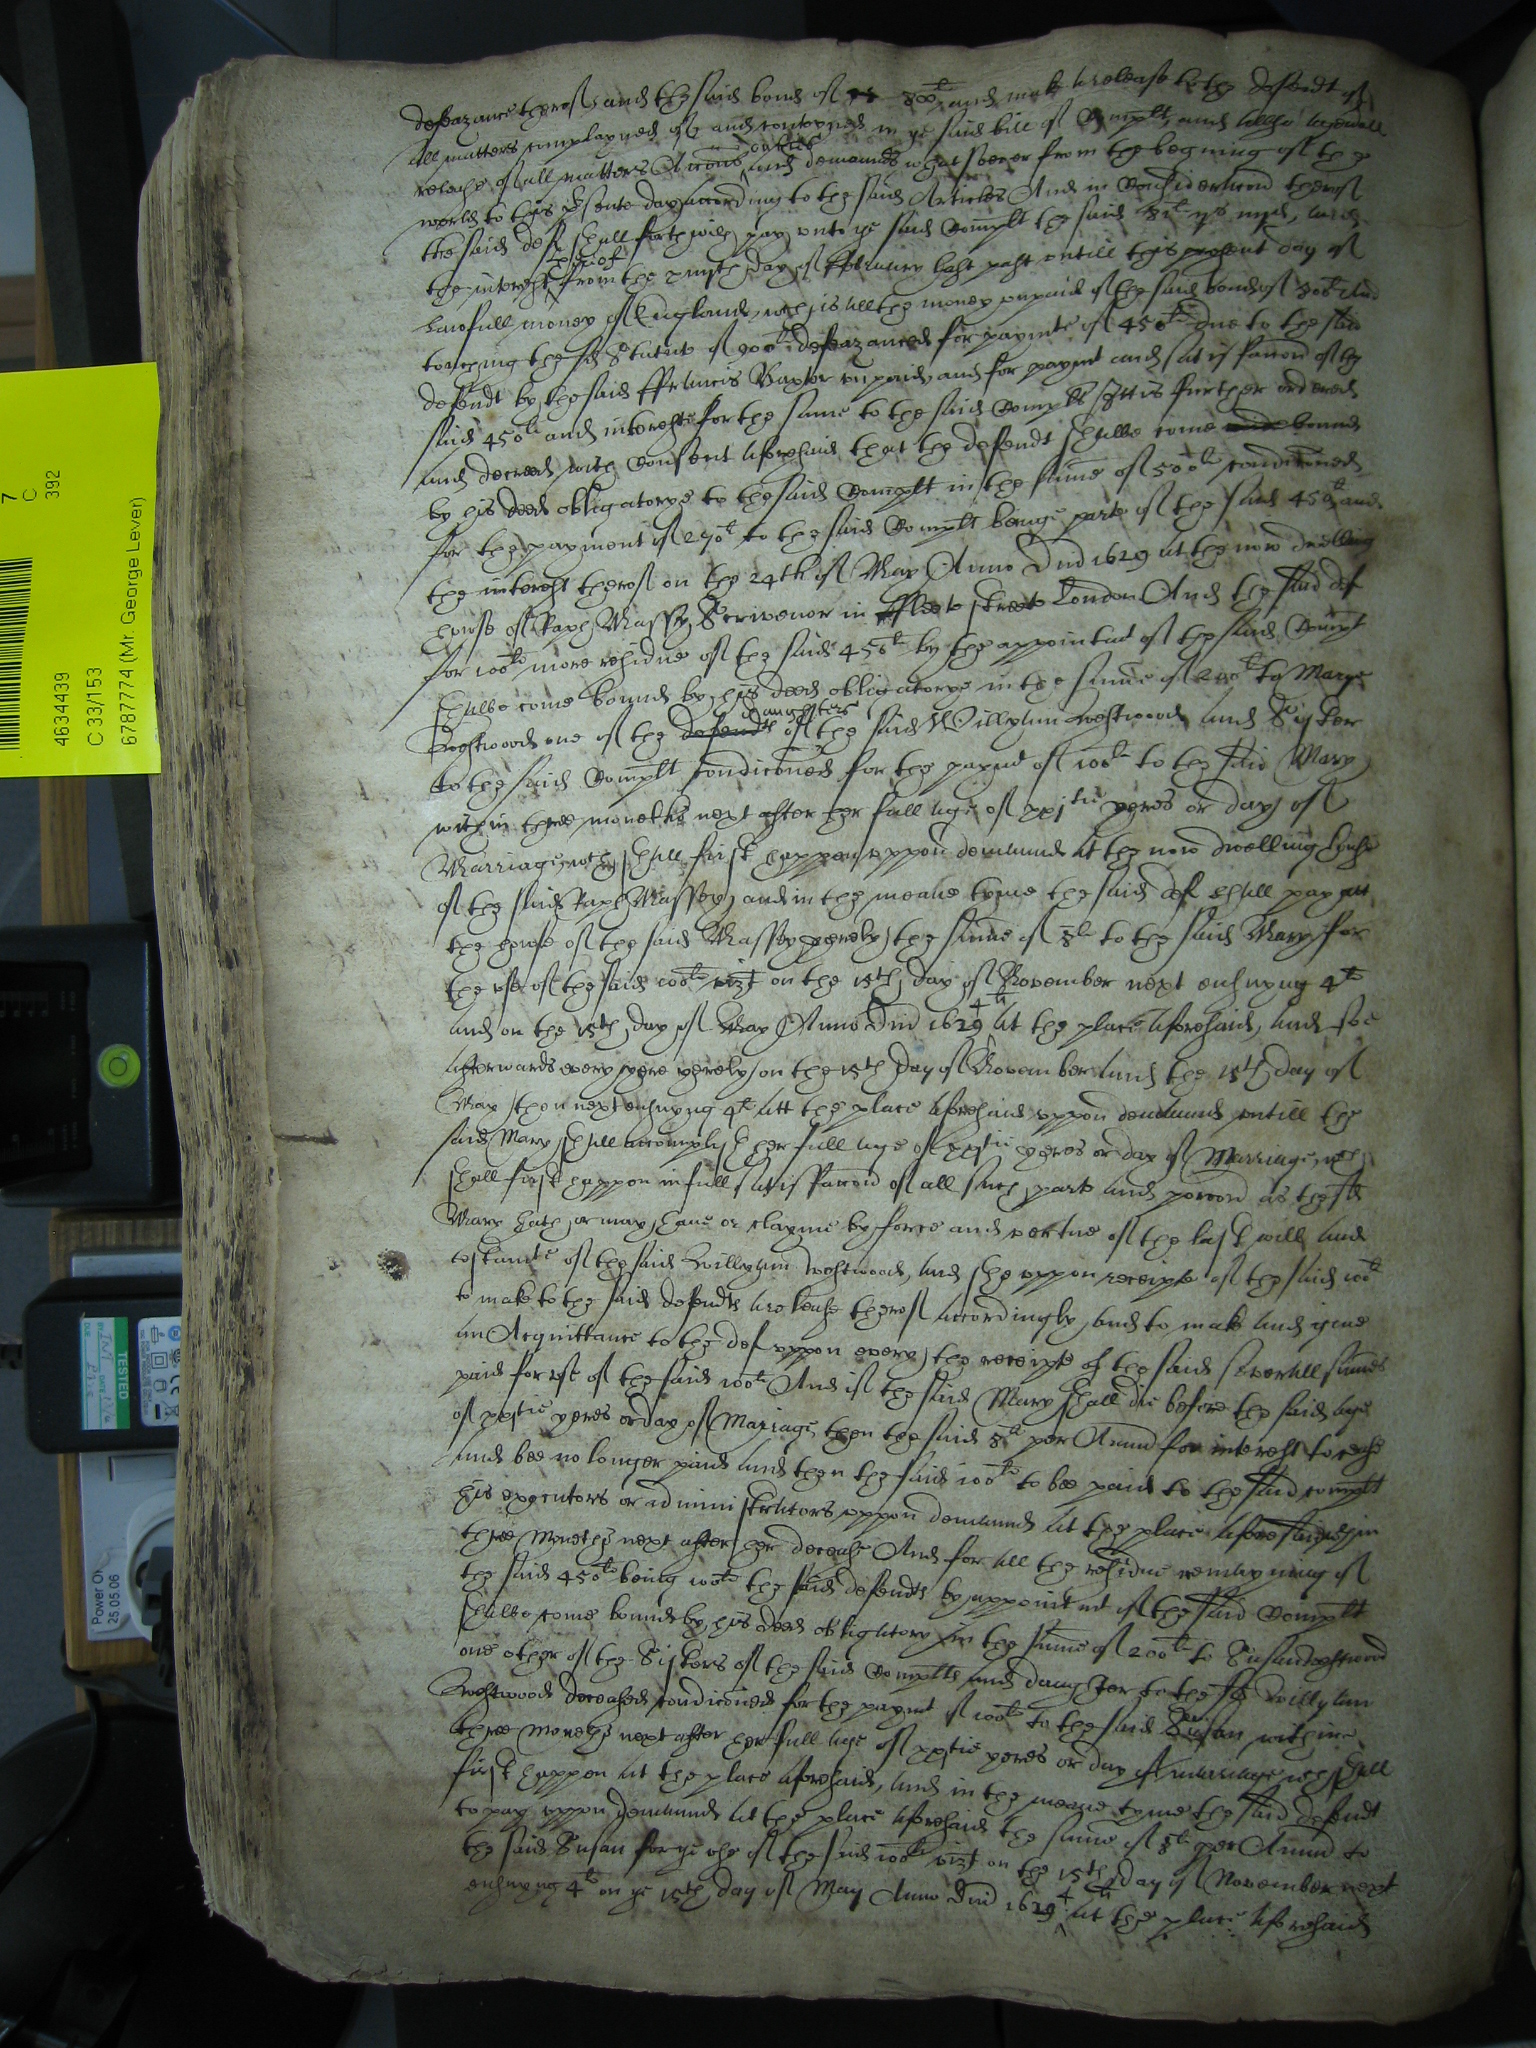 defeazance thereof and the said bond of 300li and make a release to the defendt of
All matters complayned of and conteyned in ye said bill of Complt and allso a generall
release of all matters Accons suites and demaunds whatsoever from the begining of the
world to this psente day according to the said Articles And in Consideracon thereof
the said def shall forthwith pay unto ye said Complt the said and
the interest thereof from the day of ffebruary last past untill this present day of
lawfull money of England wch is all the money unpaid of the said bond of 300li And
touching the sd Statute of 900li defeazanced for paymte of 450li due to the said
defendt by the said ffrancis Baxter unpaid and for paymt and satisfaccon of the
said 450li and intereste for the same to the said Complt Itt is further ordered
and decreed with Consent aforesaid that the defendt shalbe come bound
by his deed obligatorye to the said Complt in the sume of 500li condiconed
for the payment of 270li to the said Complt beinge parte of the said 450li and
the interest thereof on the 24th of May Anno Dni 1629 at the now dwelling
howse of Raph Massey Scrivenor in ffleete streete London And the said def
for 100li more residue of the said 450li by the appointmt of the said Complt
shalbe come bound by his deed obligatorye in the sume of 200li to Marye
Westwood one of the defendts daughters of the said Willyam Westwood and Sister
to the said Complt condiconed for the paymt of 100li to the said Mary
within three moneths next after her full age of xxjtie yeres or day of
Marriage wch shall first happen uppon demaund at the now dwelling house
of the said Raph Massey, and in the meane tyme the said def shall pay att
the howse of the said Massey yerely the sume of 8li to the said Mary for
the use of the said 100li vizt on the 15th day of November next ensuyng 4li
and on the 15th day of May Anno Dni 1629 4li at the place aforesaid, and soe
afterwards every yere yerely on the 15th day of November and the 15th day of
May then next ensuyng 4li att the place aforesaid uppon demaund untill the
said Mary shall accomplish her full age of xxjtie yeres or day of Marriage wch
shall first happen in full satisfaccon of all such parte and porcon as the sd
Mary hath or may have or clayme by force and vertue of the last will and
testamte of the said Willyam Westwood, and she uppon receipte of the said 100li
to make to the said defendts a release thereof accordingly, and to make and give
an Acquittance to the def uppon every the receipte of the said severall sumes
paid for use of the said 100li And if the said Mary shall die before the said age
of xxjtie yeres or day of Mariage then the said 8li per Annu for interest to cease
and bee no longer paid and then the said 100li to bee paid to the said complt
his executors or administrators uppon demaund at the place aforesaid within
three Moneths next after her decease And for all the residue remayning of
the said 450li being 100li the said defendts by appointmt of the said Complt
shalbe come bound by his deed obligatory in the sume of 200li to Susan Westwood
one other of the Sisters of the said Complts and daughter to the sd Willyam
Westwood deceased condiconed for the paymt of 100li to the said Susan within
three Moneths next after her full age of xxjtie yeres or day of marriage wch shall
first happen at the place aforesaid, and in the meane tyme the said defendt
to pay uppon demaund at the place aforesaid the sume of 8li per Annu to
the said Susan for ye use of the said 100li vizt on the 15th day of November next
ensuyng 4li on ye 15th day of May Anno Dni 1629 4li at the place aforesaid
7
C
392
4634439
C 33/153
6787774 (Mr. George Lever)
TESTED
Power OK
25.05.06